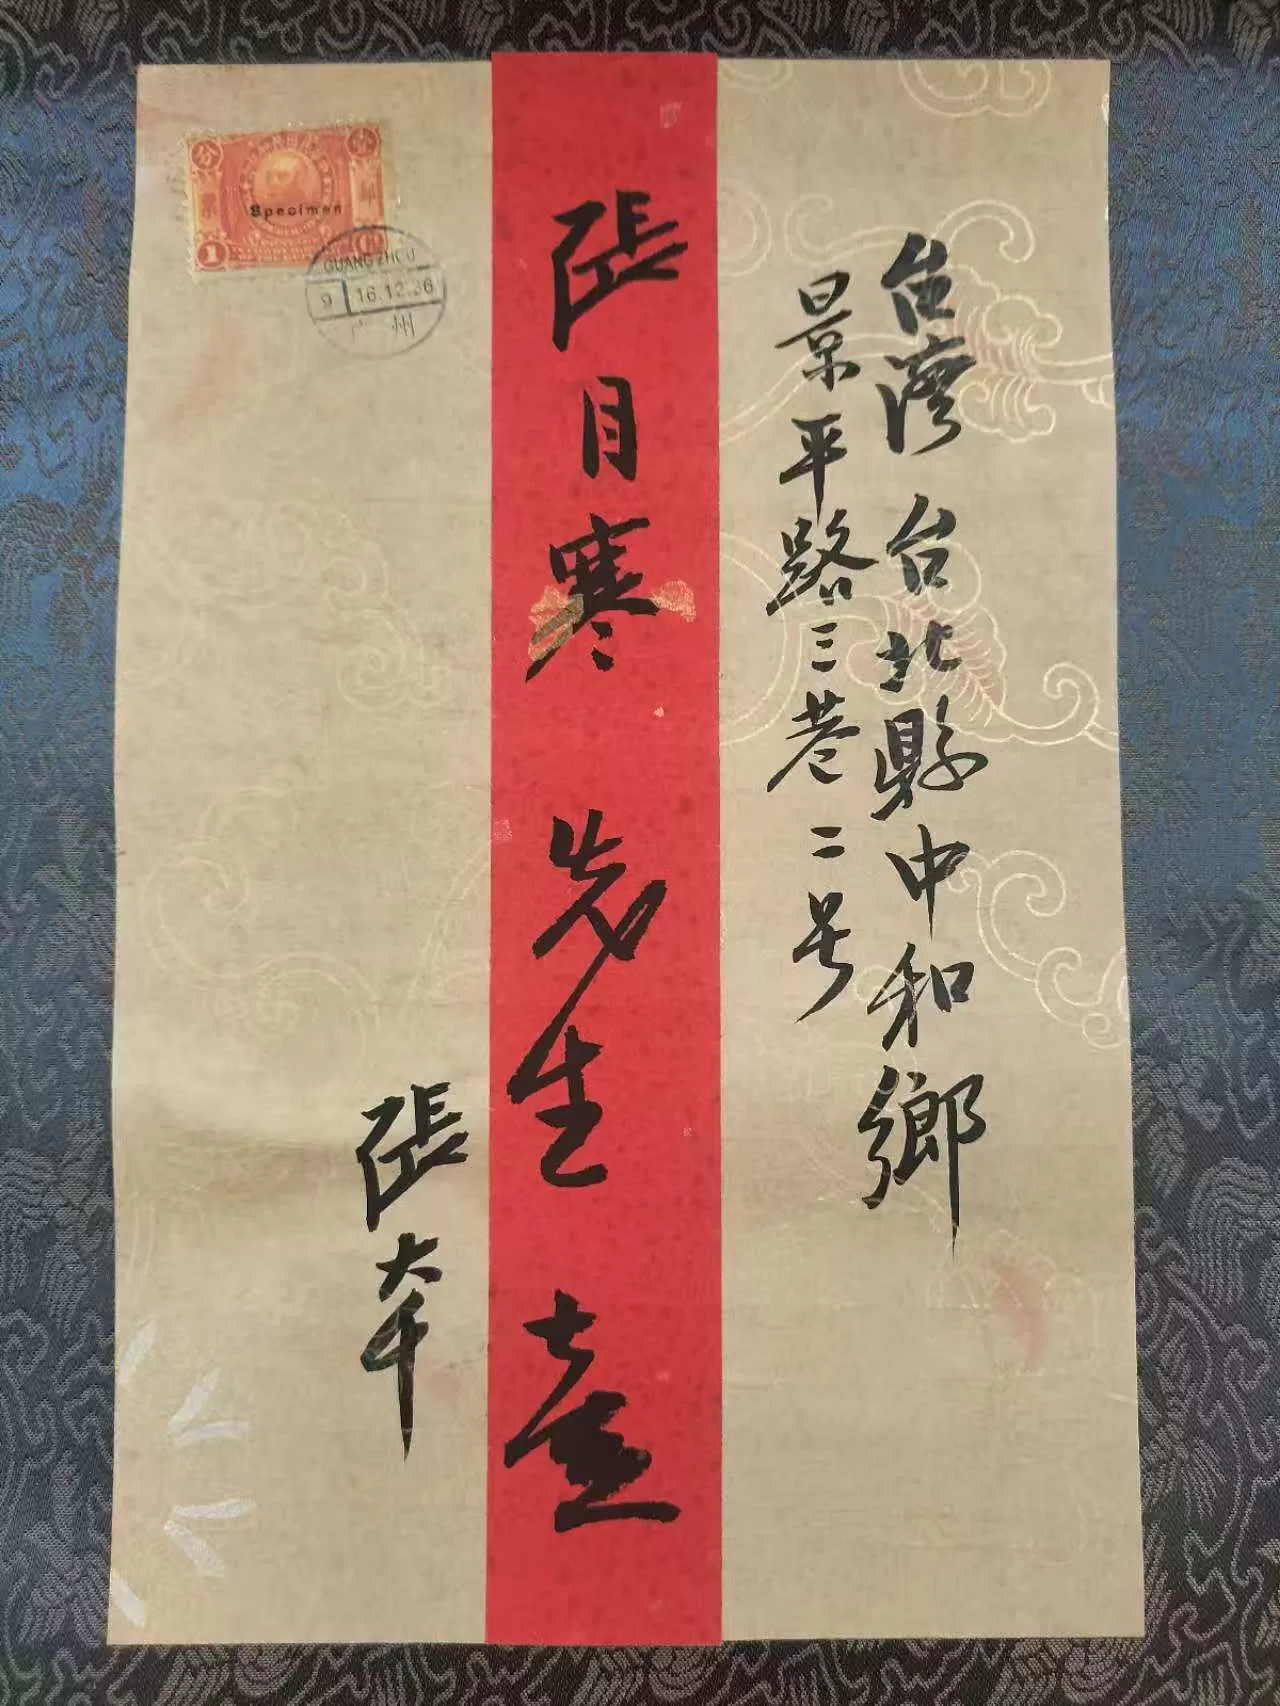 台灣 台北縣中和鄉
景平路三巷二号
張目寒 先生 壹
張大千
Specimen
1
GUANGZHOU
9 16.12.36
广州